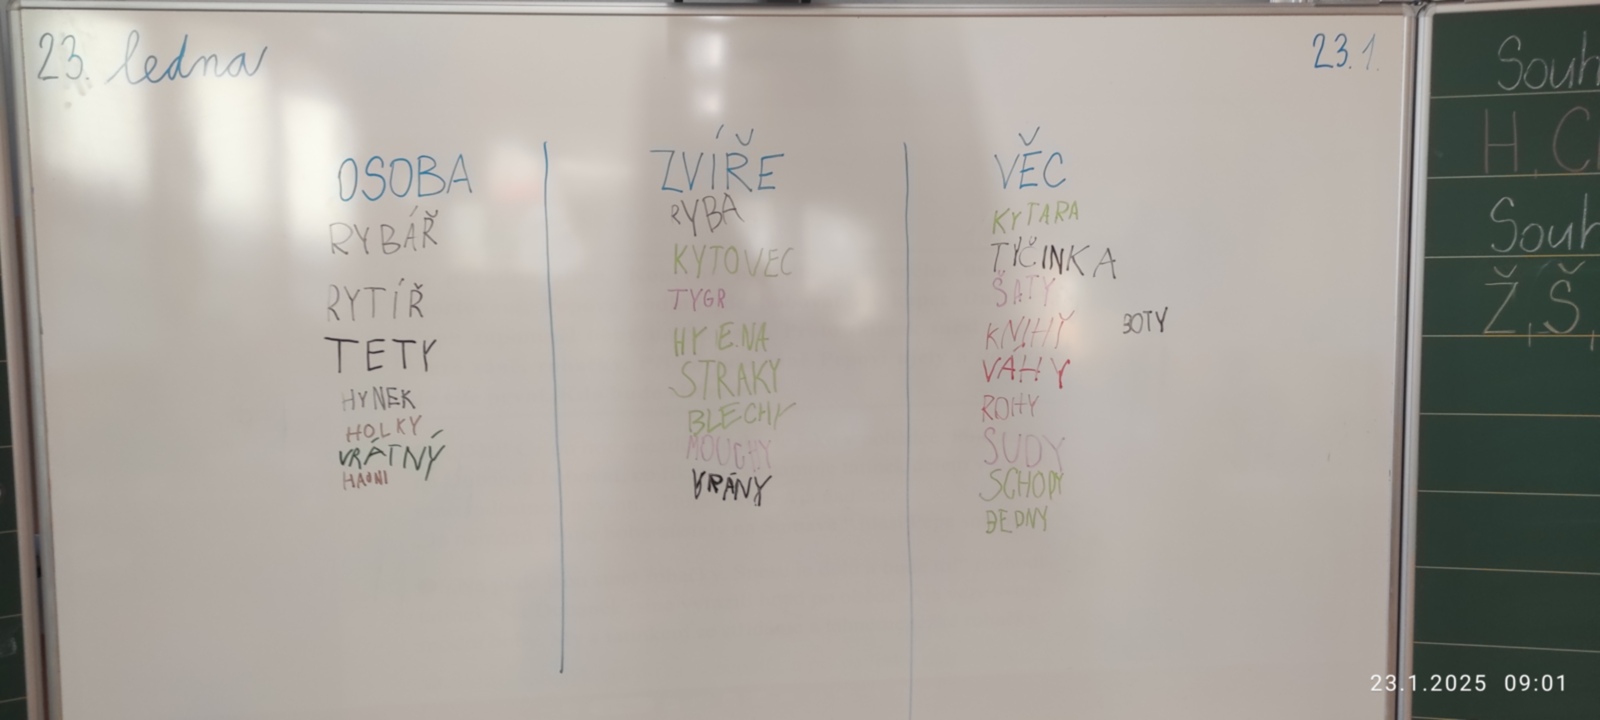 23. ledna
23.1.
OSOBA
RYBÁŘ
RYTÍŘ
TETY
HYNEK
HOLKY
VRÁTNÝ
ZVÍŘE
RYBA
KYTOVEC
TYGR
HYENA
STRAKY
BLECHY
MOUCHY
VRÁNY
VĚC
KYTARA
TYČINKA
ŠATY
KNIHY
BOTY
VÁHY
ROHY
SUDY
SCHODY
BEDNY
Souh
H, C
Souh
Ž, Š,
23.1.2025 09:01